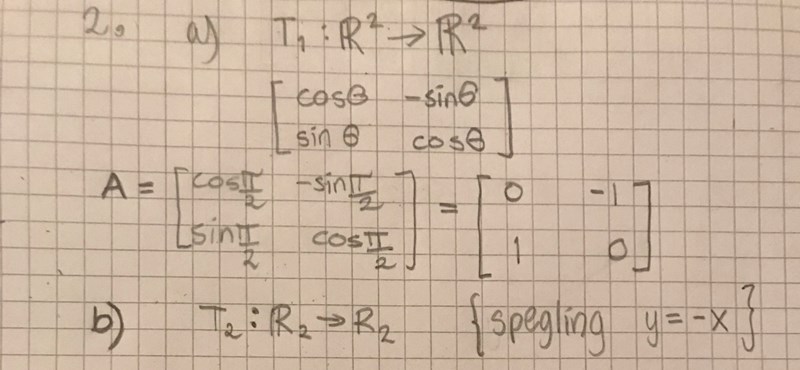 2. a) T₁ : ℝ² → ℝ²
[ cosθ -sinθ
sin θ cosθ ]
A = [ cos π/2 -sin π/2
sin π/2 cos π/2 ] = [ 0 -1
1 0 ]
b) T₂ : ℝ₂ → ℝ₂ {spegling y = -x}